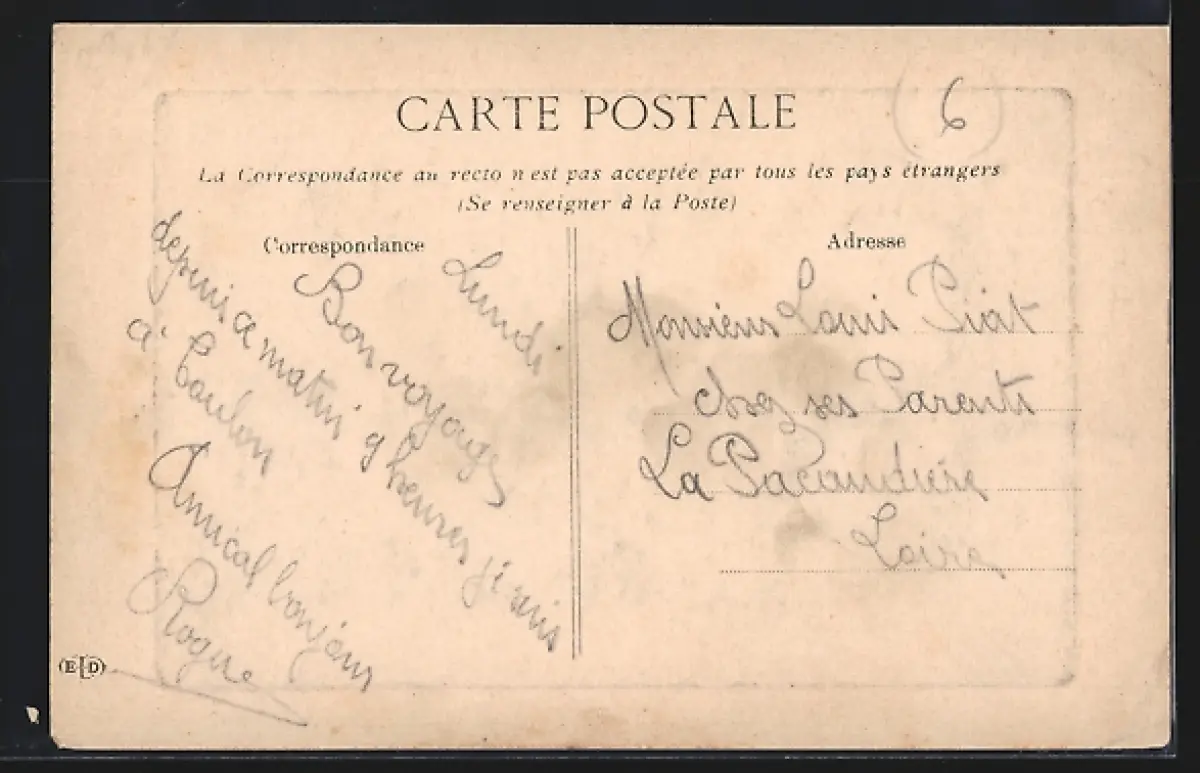 CARTE POSTALE
6
La Correspondance au recto n'est pas acceptée par tous les pays étrangers
(Se renseigner à la Poste)
Correspondance
Adresse
Lundi
Bon voyage
depuis ce matin 9 heures je suis
à Toulon
Amical bonjour
Rogue
Monsieur Louis Piat
chez ses Parents
La Pacaudière
Loire
ELD